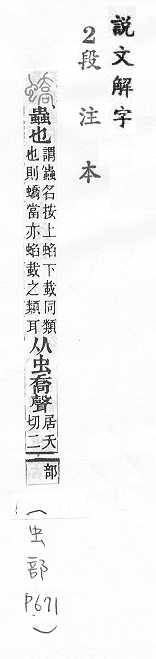 說文解字
2段注本
蟜
蟲也
謂蟲名按上蛸下蛓同類
也則蟜當亦蛸蛓之類耳
从虫喬聲
居夭
切二
部
(虫部P671)